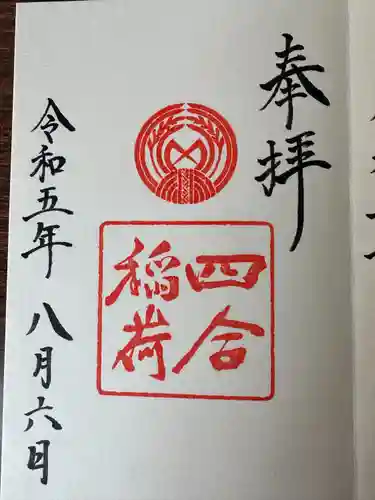 奉拝
四合
稲荷
令和五年 八月六日